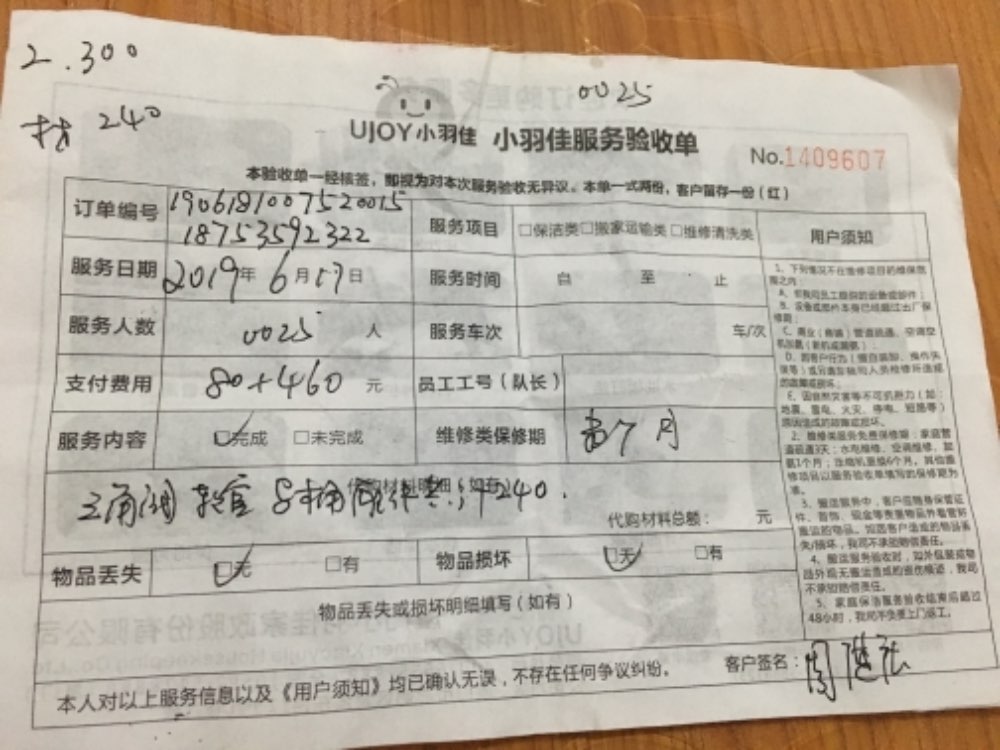 2.300
0025
找 240
UJOY小羽佳 小羽佳服务验收单
No.1409607
本验收单一经核签，即视为对本次服务验收无异议。本单一式两份，客户留存一份（红）
订单编号 1906181007520015 服务项目 □保洁类□搬家运输类□维修清洗类 用户须知
18753592322
服务日期 2019年 6月17日 服务时间 自 至 止
服务人数 0025 人 服务车次 车/次
支付费用 80+460 元 员工工号（队长）
服务内容 □完成 □未完成 维修类保修期 月
代购材料明细（如有）
三角阀 240.
代购材料总额： 元
物品丢失 □无 □有 物品损坏 □无 □有
物品丢失或损坏明细填写（如有）
本人对以上服务信息以及《用户须知》均已确认无误，不存在任何争议纠纷。
客户签名：
1、下列情况不在维修项目的维保范围之内：
A、非我司员工提供的设备或部件；
B、设备或部件本身已经超过出厂保修期；
D、因客户行为（擅自装卸、操作失误等）或另请其他人员检修所造成的故障或损坏。
E、因自然灾害等不可机抗力（如：地震、雷电、火灾、停电、短路等）原因造成的故障或损坏。
2、维修类服务免费保修期：家庭管道疏通3天；水电维修、空调维修、加氨1个月；压缩机更换6个月。其他维修项目以服务验收单填写的保修期为准。
3、搬运服务中，客户应随身保管证件、首饰、现金等贵重物品并看管好搬运的物品。如因客户造成的物品丢失/损坏，我司不承担赔偿责任。
4、搬运服务验收时，如外包装或物品外观无搬运造成的损伤痕迹，我司不承担赔偿责任。
5、家庭保洁服务验收结束后超过48小时，我司不免费上门返工。